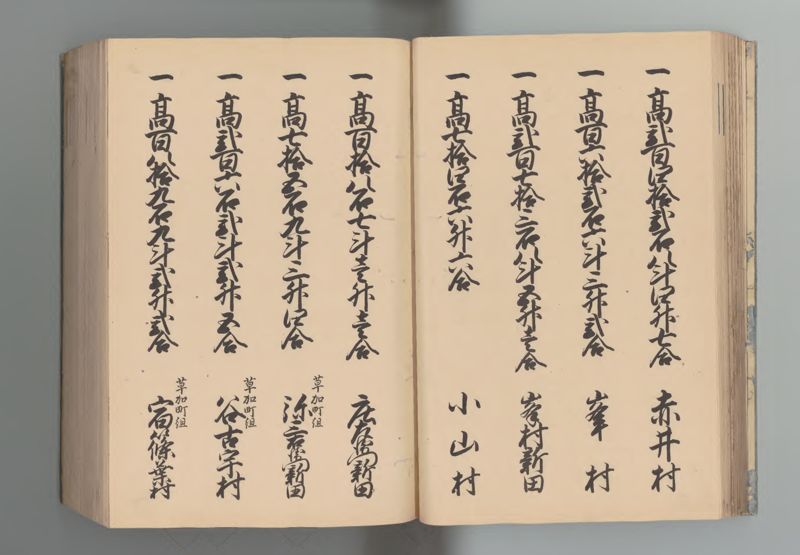 一 高弐百四拾弐石八斗四升七合 赤井村
一 高百六拾弐石六斗三升弐合 峯村
一 高弐百七拾三石八斗五升壱合 峯村新田
一 高七拾四石六升六合 小山村
一 高百拾八石七斗壱升壱合 庄左衛門新田
一 高七拾五石九斗三升四合 草加町組 弥三右衛門新田
一 高弐百六石弐斗弐升五合 草加町組 谷古宇村
一 高百八拾九石九斗弐升弐合 草加町組 宿篠葉村